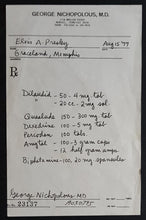 GEORGE NICHOPOLOUS, M.D.
Elvis A. Presley Aug 15 '77
Graceland, Memphis
Rx
Dilaudid - 50 - 4 mg tab
- 20cc - 2 mg sol.
Quaalude 150 - 300 mg tab
Dexedrine 100 - 5 mg tab
Percodan 100 tabs
Amytal - 100 - 3 gram caps
- 12 half gram amps
Biphetamine - 100, 20 mg spansules
George Nichopolous - MD
23137